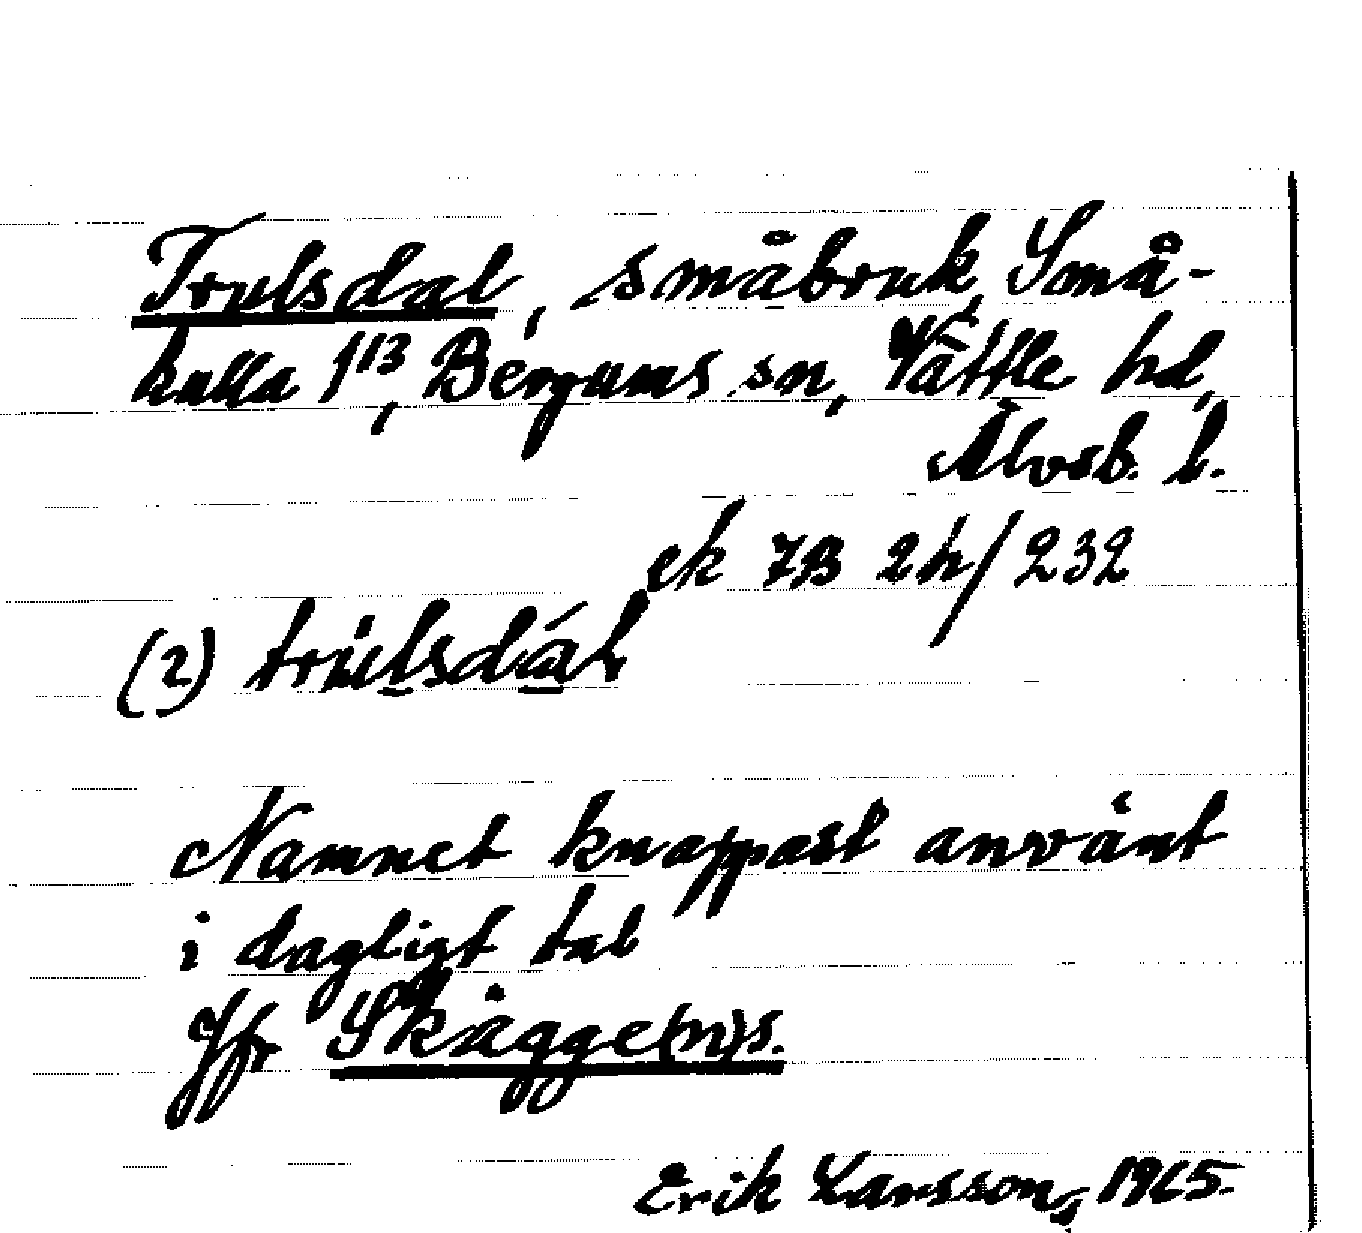 Trulsdal, småbruk, Små-
kulla 1¹³, Bergums sn, Vättle hd,
Älvsb. l.
ek 7B 2h/232
(2) trùlsdál
Namnet knappast använt
i dagligt tal
Jfr Skägge(n)s.
Erik Larsson, 1965.